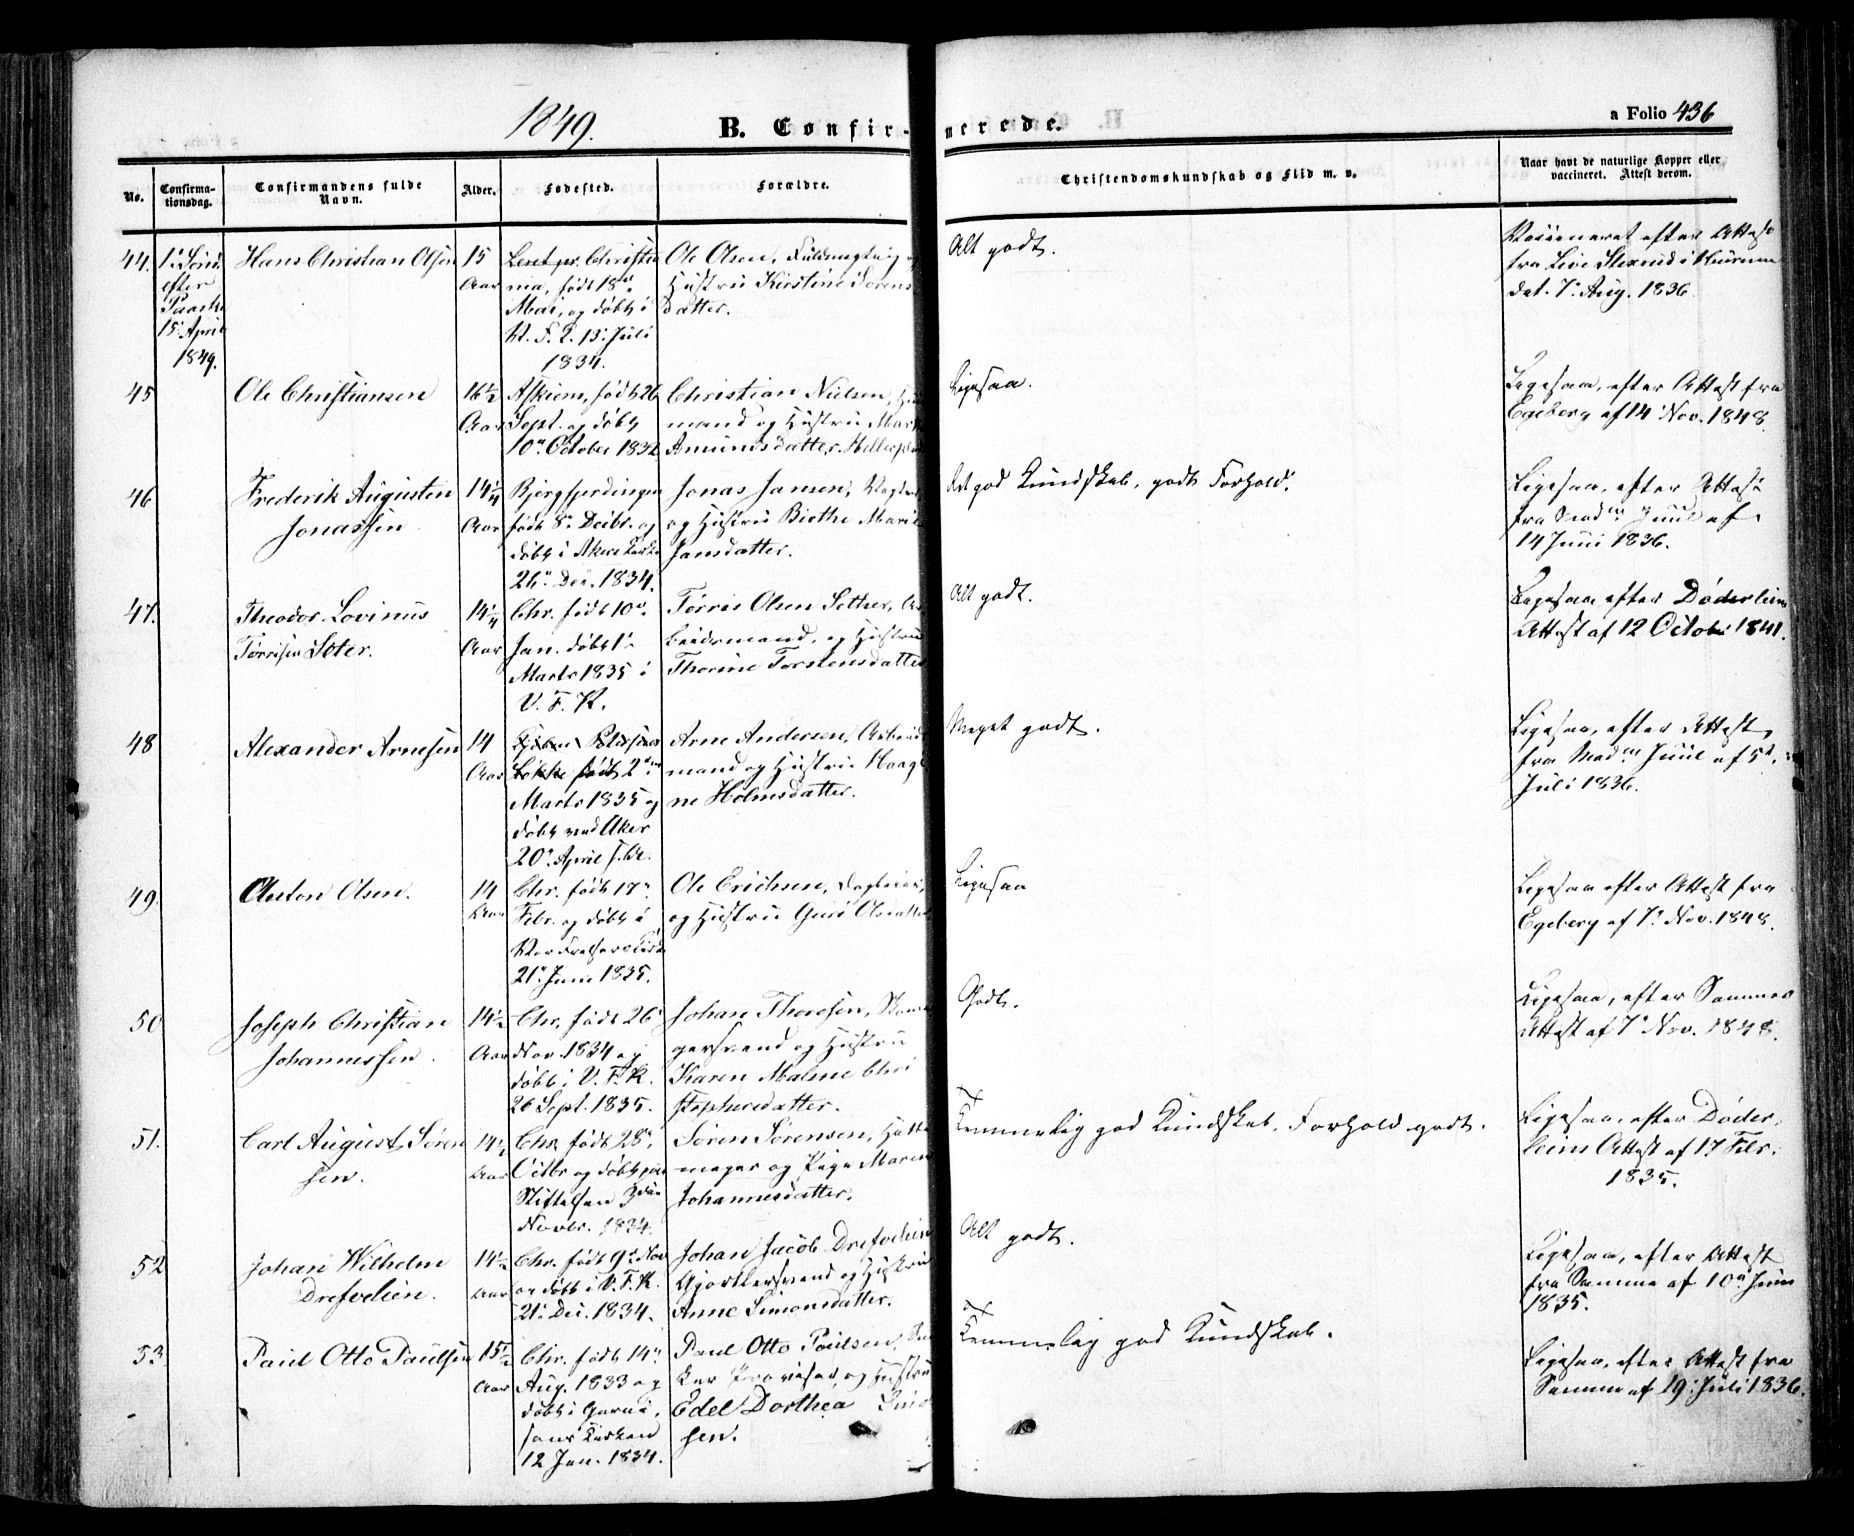 1849.
B. Confir-
merede.
a Folio 436
No.
Confirma-
tionsdag.
Confirmandens fulde
Navn.
Alder.
Fødested.
Forældre.
Christendomskundskab og Flid m. v.
Naar havt de naturlige Kopper eller
vaccineret. Attest derom.
44.
efter
Paaske
15. April
1849.
Hans Christian Olsen
15
Aar
Christia
nia, født 18de
Mai, og døbt i
V. F. K. 13. Juli
1834.
Ole Olsen, Fuldmægtig og
Hustru Kirstine Sørens
datter.
Alt godt.
Vaccineret efter Attest
fra
dat. 7. Aug. 1836.
45
Ole Christiansen
16½
Aar
Askim, født 26
Sept. og døbt
10de October 1832
Christian Nielsen,
mand og Hustru
Amundsdatter
Ligesaa.
Ligesaa, efter Attest fra
Egeberg af 14 Nov. 1848.
46
Frederik Augustin
Jonassen
14¼
Aar
født 8de Decbr. og
døbt i Akers Kirke
26de Dec. 1834.
Jonas Jansen,
og Hustru Birthe Marie
Jansdatter.
god Kundskab, godt Forhold.
Ligesaa, efter Attest
fra Madm Juul af
14 Juni 1836.
47.
Theodor Lovinus
Tørrisen Seter.
14¼
Aar
Chr. født 10de
Jan. døbt 1de
Marts 1835 i
V. F. K.
Tørris Olsen Sether, Ar
beidsmand, og Hustru
Thorine Torstensdatter
Alt godt.
Ligesaa efter Døderlein
Attest af 12 Octobr 1841.
48
Alexander Arnesen
14
Aar
Løkke født 2den
Marts 1835 og
døbt ved Aker
20de April s. A.
Arne Andersen, Arbeids
mand og Hustru Haag
ne Holmsdatter.
Meget godt.
Ligesaa, efter Attest
fra Madm Juul af 5te
Juli 1836.
49.
Anton Olsen.
14
Aar
Chr. født 17de
Febr. og døbt i
Vor Frelsers Kirke
21de Juni 1835.
Ole Erichsen,
og Hustru Guri Olsdatter
Ligesaa
Ligesaa efter Attest fra
Egeberg af 7de Nov. 1848.
50
Joseph Christian
Johannessen.
14½
Aar
Chr. født 26
Nov. 1834 og
døbt i V. F. K.
26 Sept. 1835.
Johan Thoresen,
gersvend og Hustru
Karen Malene Chri
stophersdatter.
Godt.
Ligesaa, efter Sammes
Attest af 7de Nov. 1848.
51.
Carl August Søren
sen.
14½
Aar
Chr. født 28de
Octbr og døbt paa
Stiftelsen 3die
Novbr. 1834.
Søren Sørensen, Hatte
mager og Pige Maren
Johannesdatter.
Temmelig god Kundskab. Forhold godt.
Ligesaa, efter Døder
leins Attest af 17 Febr.
1835.
52
Johan Wilhelm
Drefvelien.
14½
Aar
Chr. født 9de Nov
og døbt i V. F. K.
21de Dec. 1834.
Johan Jacob Drefvelien
Gjørtlersvend og Hustru
Anne Simonsdatter.
Alt godt.
Ligesaa, efter Attest
fra Samme af 10de Juni
1835.
53
Paul Otto Paulsen
15½
Aar
Chr. født 14de
Aug. 1833 og
døbt i Garni
sons Kirken
12 Jan. 1834.
Paul Otto Paulsen,
og Hustru
Edel Dorthea
sen.
Temmelig god Kundskab.
Ligesaa, efter Attest fra
Samme af 19. Juli 1836.